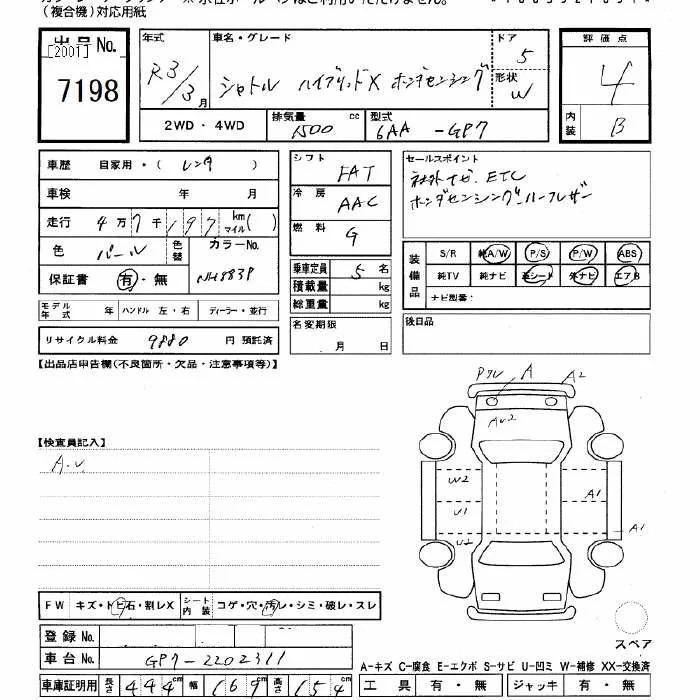 (複合機)対応用紙
出品 No.
[2001]
7198
年式
R3/3月
車名・グレード
シャトル ハイブリッドX ホンダセンシング
ドア
5
形状
W
2WD・4WD
排気量
1500 cc
型式
6AA-GP7
評価点
4
内装
B
車歴 自家用・(レンタ)
車検 年 月
走行 4万7千197 km マイル( )
色 パール 色替 カラーNo.
保証書 有・無 NH883P
モデル年式 年 ハンドル 左・右 ディーラー・並行
リサイクル料金 9880 円 預託済
シフト FAT
冷房 AAC
燃料 G
乗車定員 5 名
積載量 kg
総重量 kg
名変期限
月 日
セールスポイント
社外ナビ. ETC
ホンダセンシング.ハーフレザー
装備品
S/R 純A/W P/S P/W ABS
純TV 純ナビ 革シート 外ナビ エアB
ナビ型番:
後日品
【出品店申告欄(不良箇所・欠品・注意事項等)】
【検査員記入】
A.U.
Pクレ A A2
AU2
W2
U1
U2
A1
A1
スペア
FW キズ・トビ石・割レX シート内装 コゲ・穴・汚レ・シミ・破レ・スレ
登録 No.
車台 No. GP7-2202311
車庫証明用 長さ 444cm 幅 169cm 高さ 154cm
A-キズ C-腐食 E-エクボ S-サビ U-凹ミ W-補修 XX-交換済
工具 有・無 ジャッキ 有・無